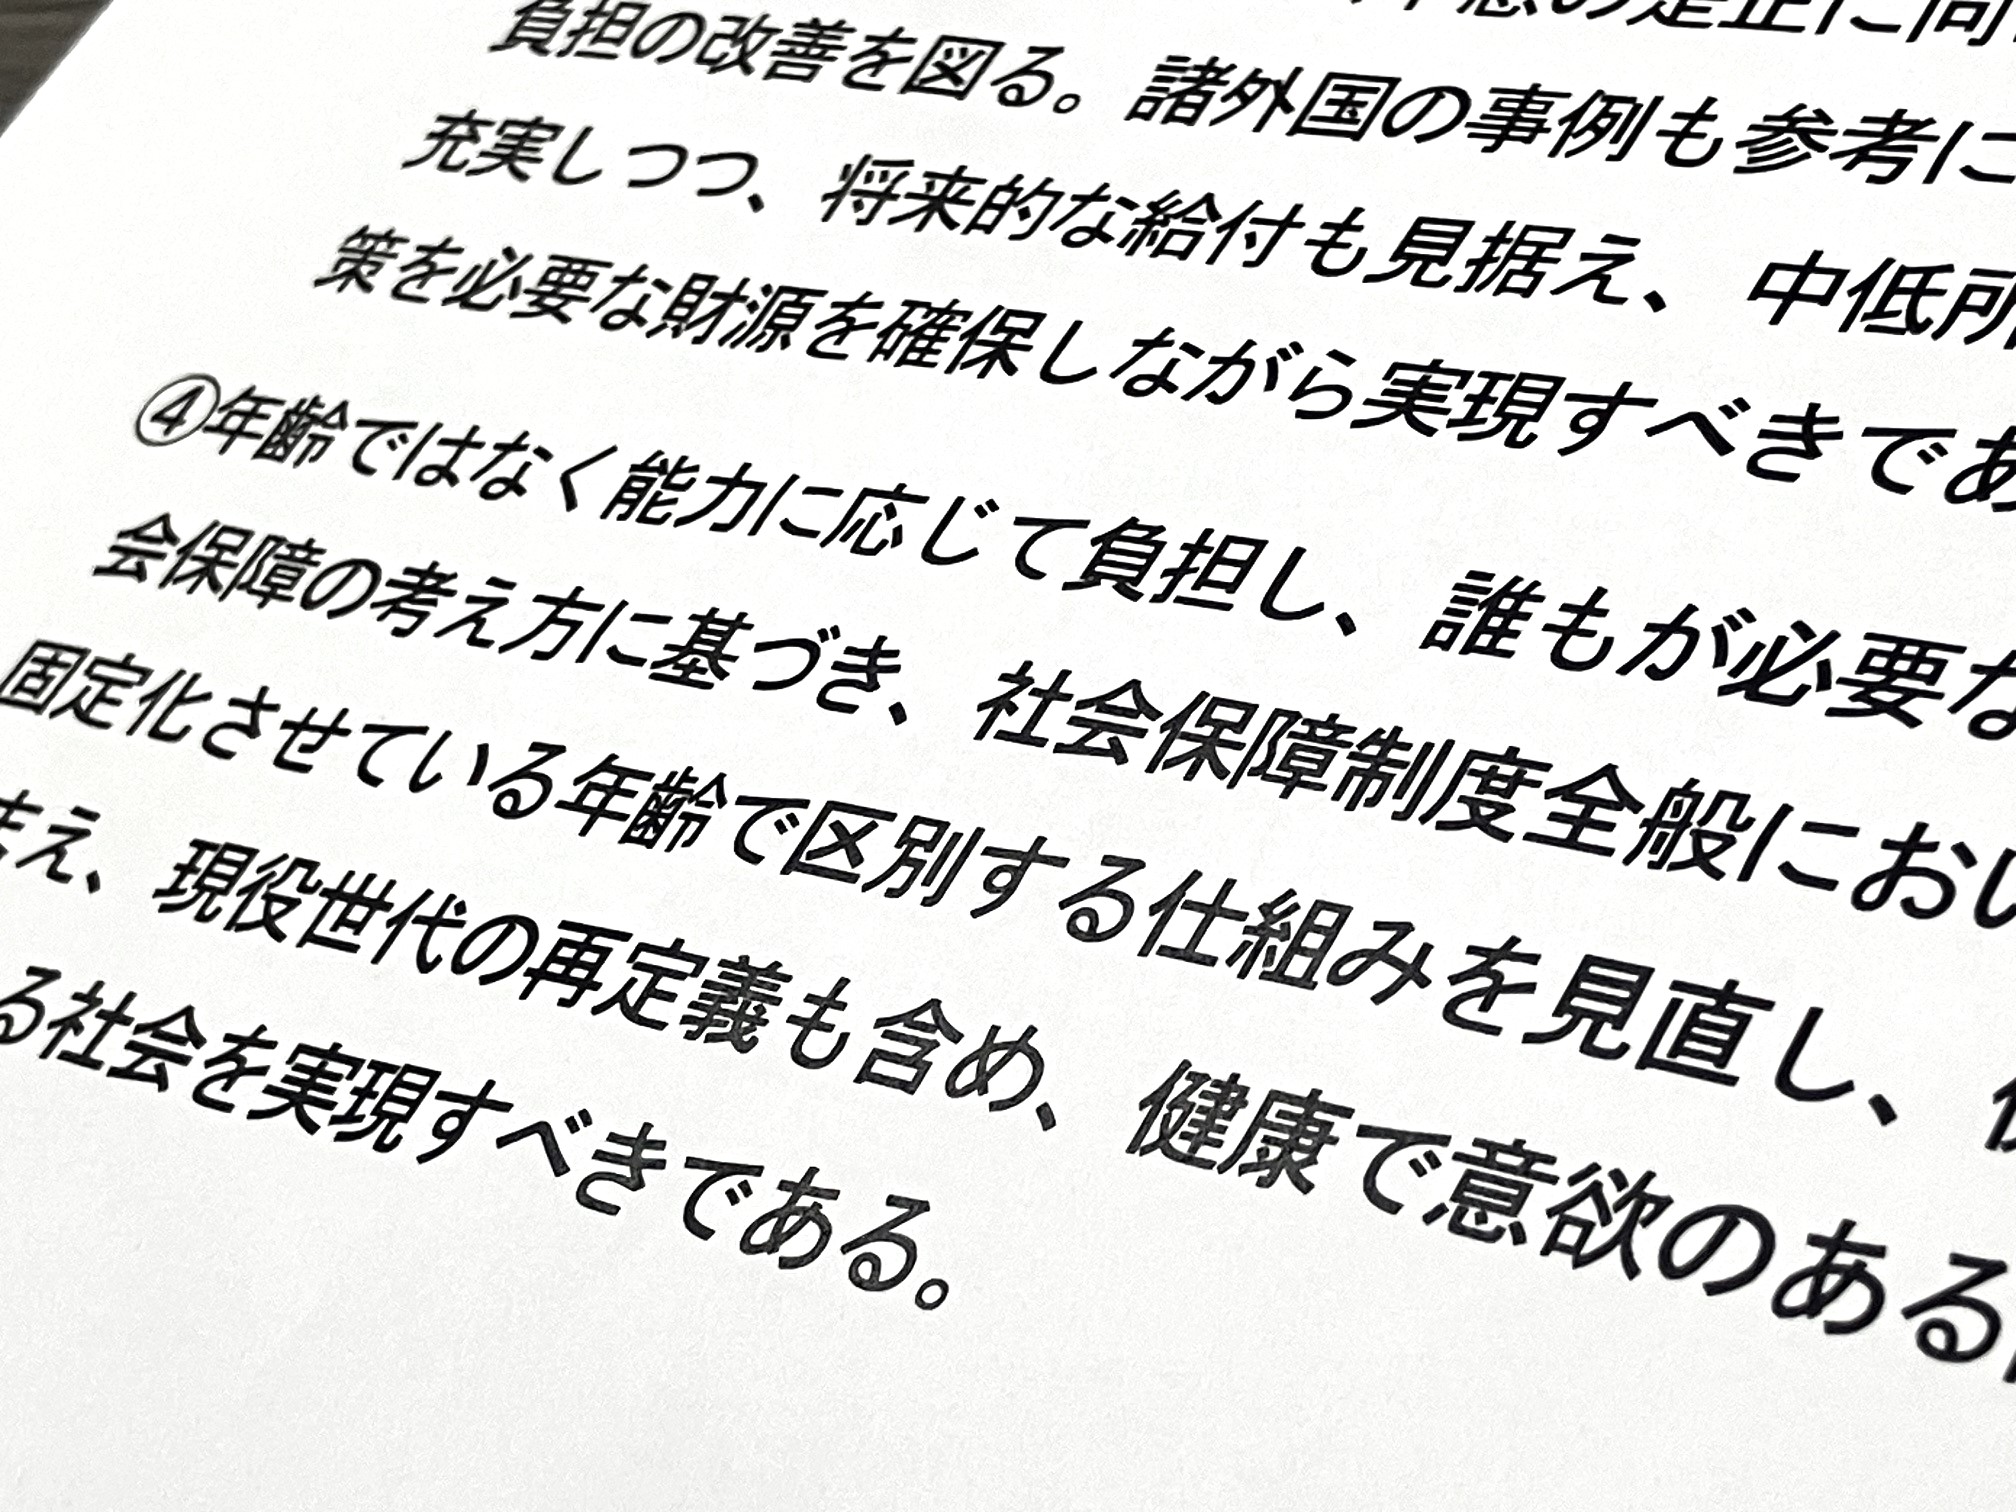 の是正に向
負担の改善を図る。諸外国の事例も参考に
充実しつつ、将来的な給付も見据え、中低所
策を必要な財源を確保しながら実現すべきであ
④年齢ではなく能力に応じて負担し、誰もが必要な
会保障の考え方に基づき、社会保障制度全般におい
固定化させている年齢で区別する仕組みを見直し、
え、現役世代の再定義も含め、健康で意欲のある
る社会を実現すべきである。